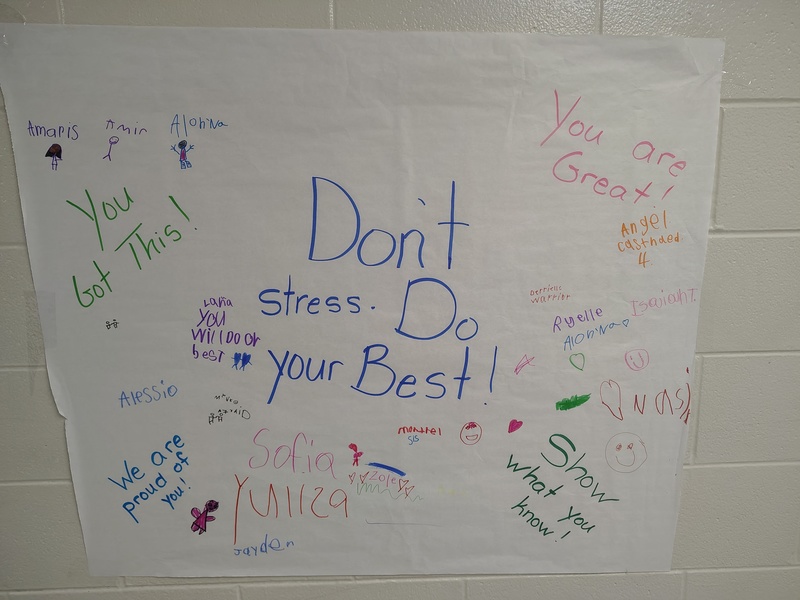 Amaris Amir Alohina
You are
Great!
You
Got This!
Don't
stress. Do
your Best!
Angel
castnaeda
4
Lana
You
will Do or
best
warrior
Isaiah T.
Ryelle
Alohina
Alessio
We are
proud of
you!
Sofia
Yuliza
Jayden
montrel
sis
Zoie
Show
what you
know!